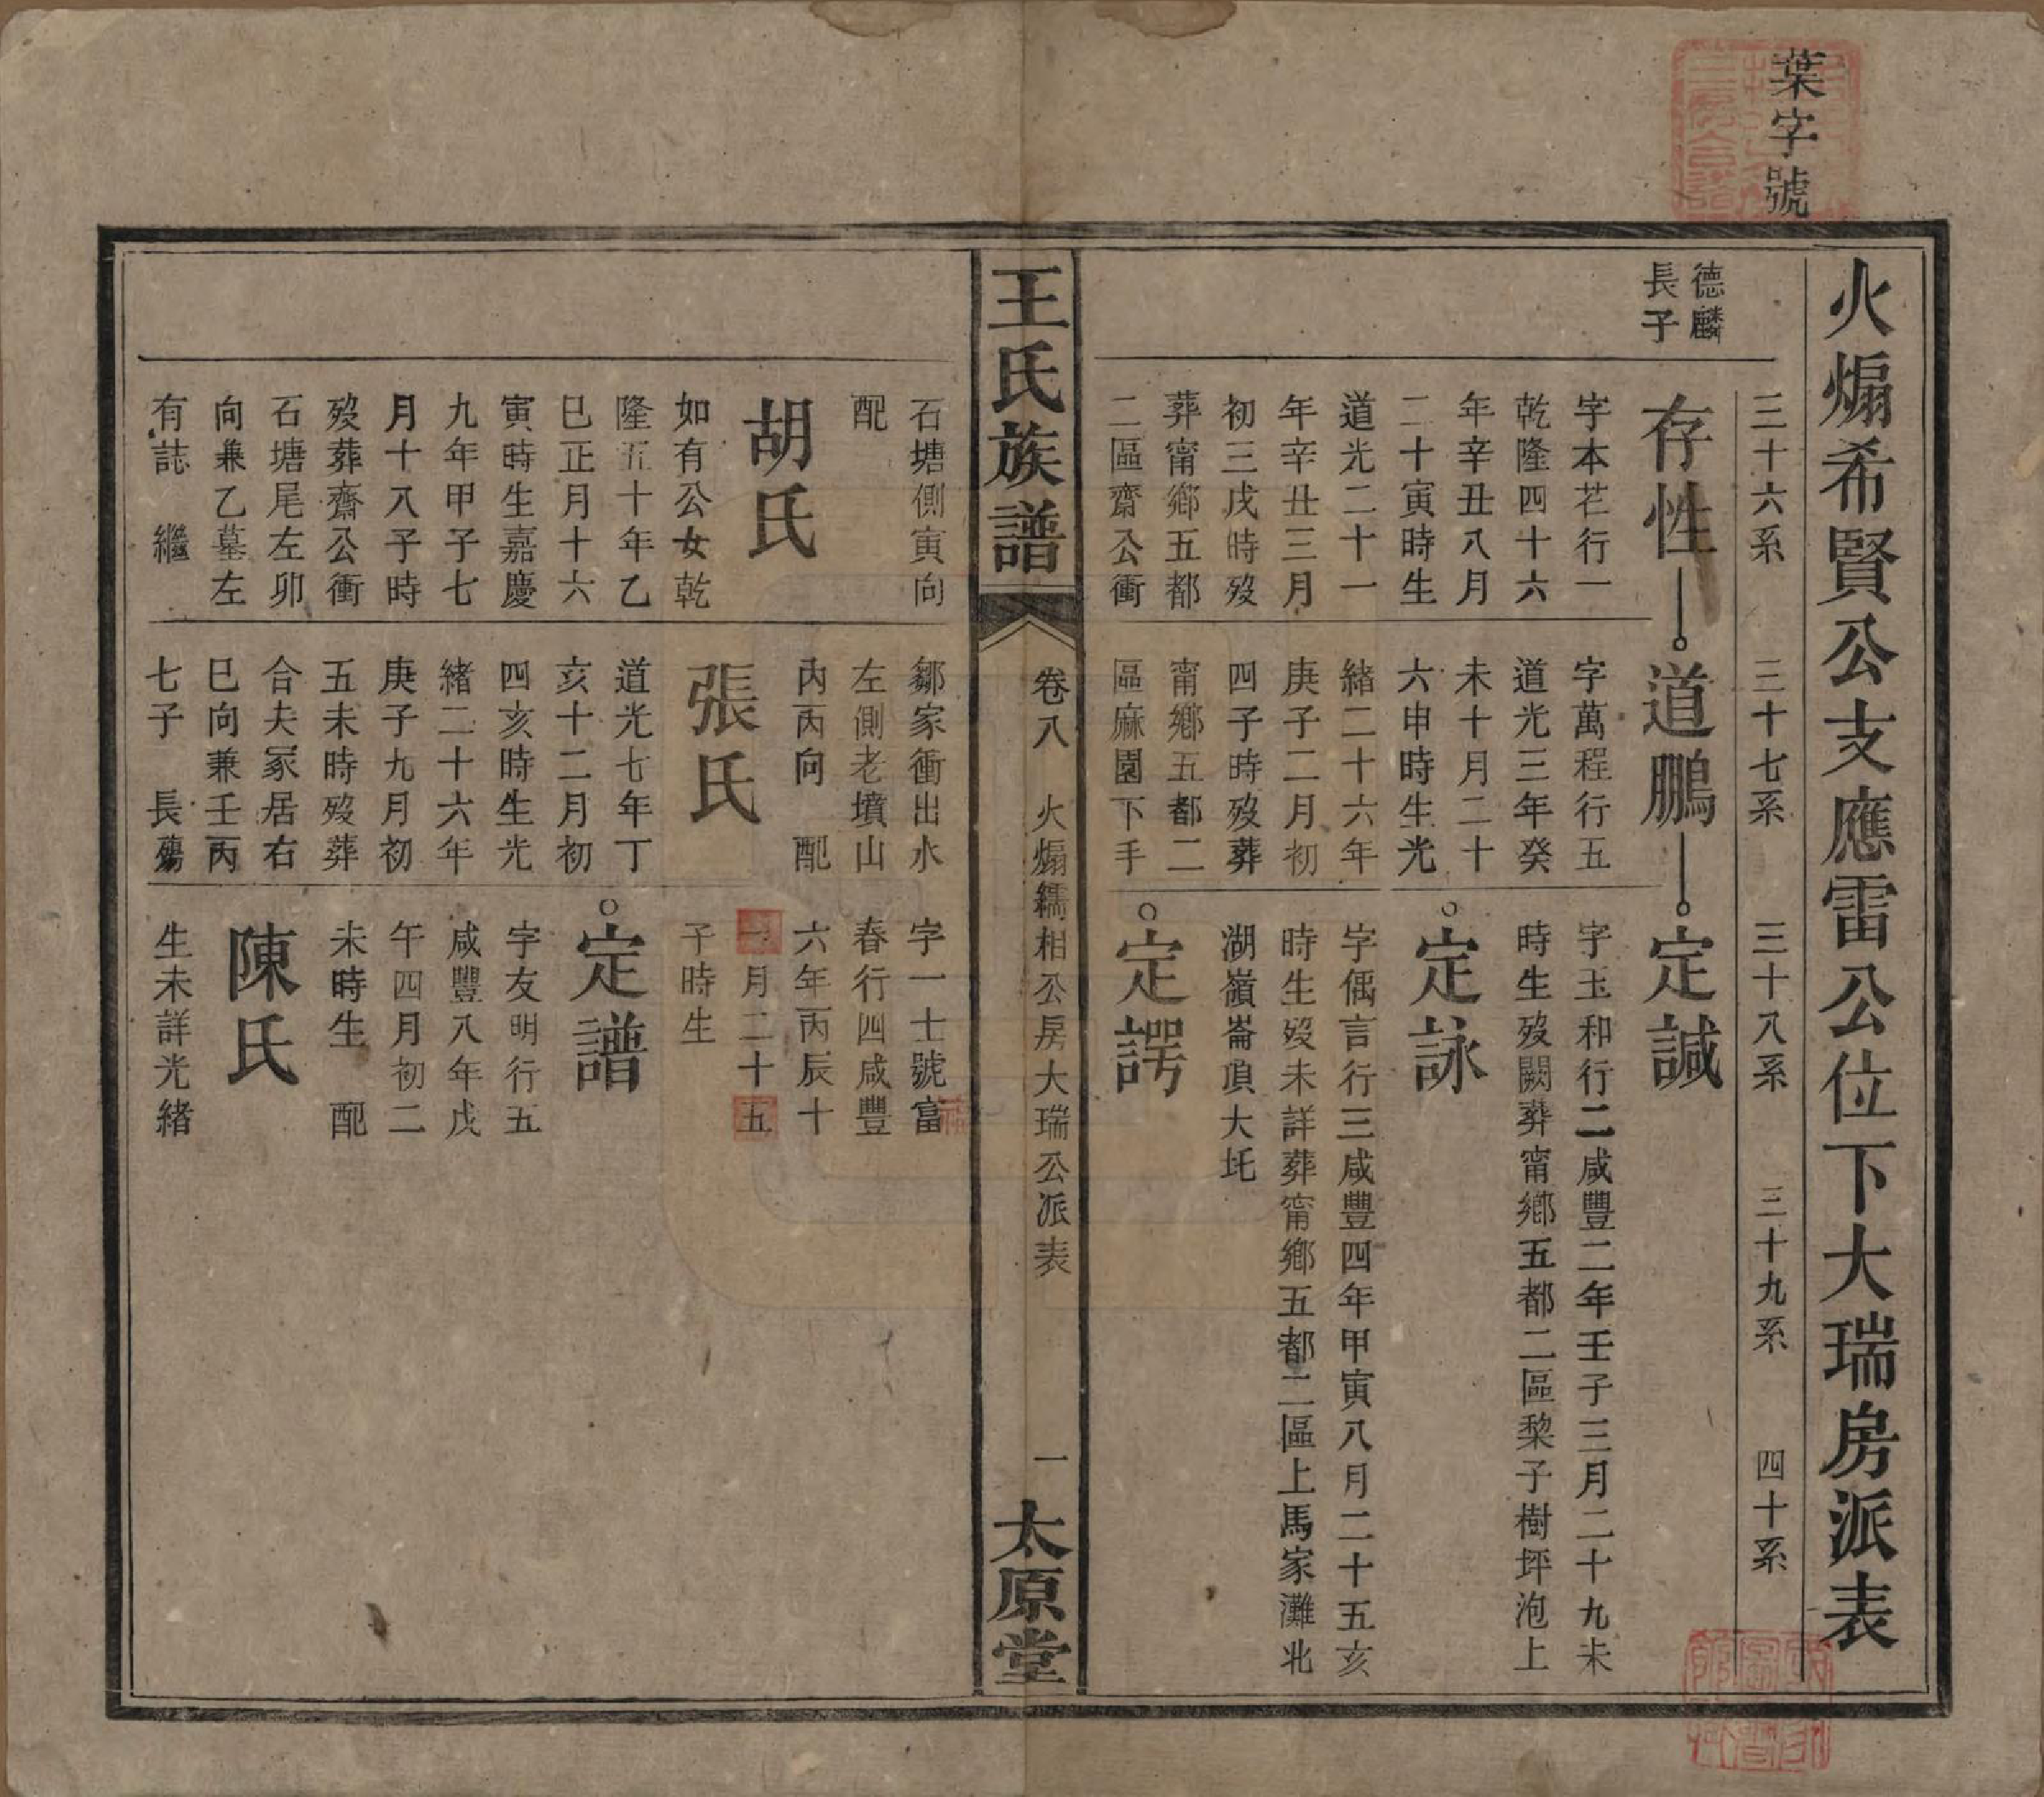 葉字號
火煽希賢公支應雷公位下大瑞房派表
三十六系
三十七系
三十八系
三十九系
四十系
德麟
長子
存性
字本芒行一
乾隆四十六
年辛丑八月
二十寅時生
道光二十一
年辛丑三月
初三戌時歿
葬甯鄉五都
二區齋公衝
石塘側寅向
配
胡氏
如有公女乾
隆五十年乙
巳正月十六
寅時生嘉慶
九年甲子七
月十八子時
歿葬齋公衝
石塘尾左卯
向兼乙墓左
有誌 繼
道鵬
字萬程行五
道光三年癸
未十月二十
六申時生光
緒二十六年
庚子二月初
四子時歿葬
甯鄉五都二
區麻園下手
鄒家衝出水
左側老墳山
內丙向 配
張氏
道光七年丁
亥十二月初
四亥時生光
緒二十六年
庚子九月初
五未時歿葬
合夫冢居右
巳向兼壬丙
七子 長殤
定諴
字玉和行二咸豐二年壬子三月二十九未
時生歿闕葬甯鄉五都二區棃子樹坪泡上
定詠
字偶言行三咸豐四年甲寅八月二十五亥
時生歿未詳葬甯鄉五都二區上馬家灘北
湖嶺崙頂大圫
定諤
字一士號富
春行四咸豐
六年丙辰十
一月二十五
子時生
定譜
字友明行五
咸豐八年戊
午四月初二
未時生 配
陳氏
生未詳光緒
王氏族譜
卷八 火煽繻相公房大瑞公派表
一
太原堂